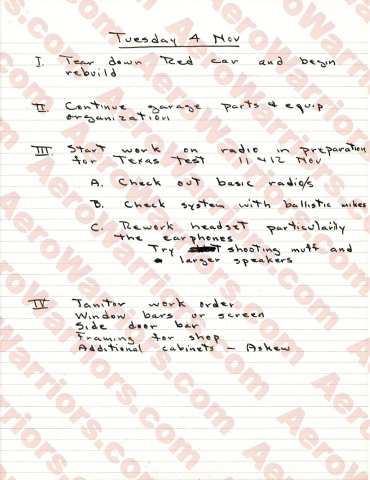 Tuesday 4 Nov
I. Tear down Red car and begin
rebuild
II. Continue garage parts & equip
organization
III. Start work on radio in preparation
for Texas Test 11 & 12 Nov
A. Check out basic radios
B. Check system with ballistic mikes
C. Rework headset particularily
the earphones
Try shooting muff and
larger speakers
IV Janitor work order
Window bars or screen
Side door bar
Framing for shop
Additional cabinets - Askew
AeroWarriors.com